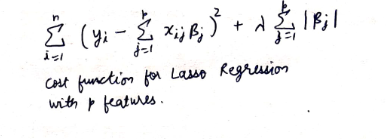 $\sum_{i=1}^{n} (y_i - \sum_{j=1}^{p} x_{ij} \beta_j)^2 + \lambda \sum_{j=1}^{p} |\beta_j|$
Cost function for Lasso Regression
with p features.